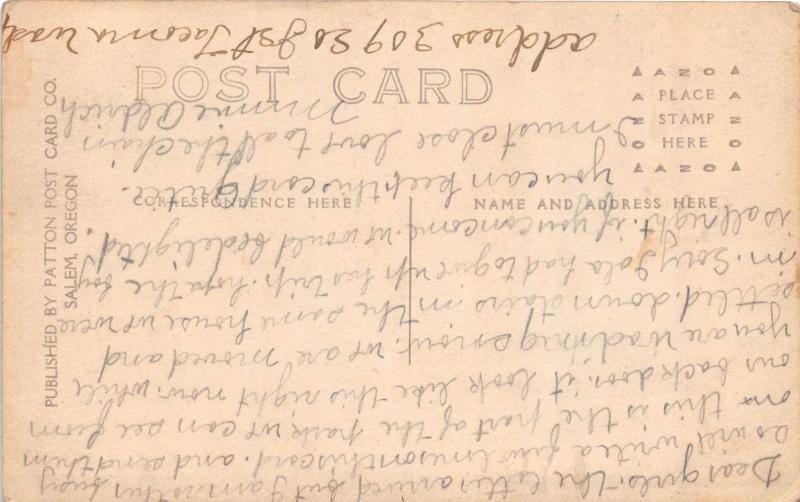 POST CARD
AZO
PLACE
STAMP
HERE
AZO
CORRESPONDENCE HERE
NAME AND ADDRESS HERE
PUBLISHED BY PATTON POST CARD CO.
SALEM, OREGON
Dear girls. The letter arrived but I am so busy
as will write a few lines on this card. and send them
on this is the part of the park we can see from
our back door, it look like this right now. while
you are wading snow. we are moved and
settled. down stairs in the same house we were
in. Sory Iola had to give up her trip. hope the boy
is all right. if you can come. we would be delighted.
you can keep this card
I must close love to all the chain
Minnie Aldrich
address 309 So J st Tacoma Wash